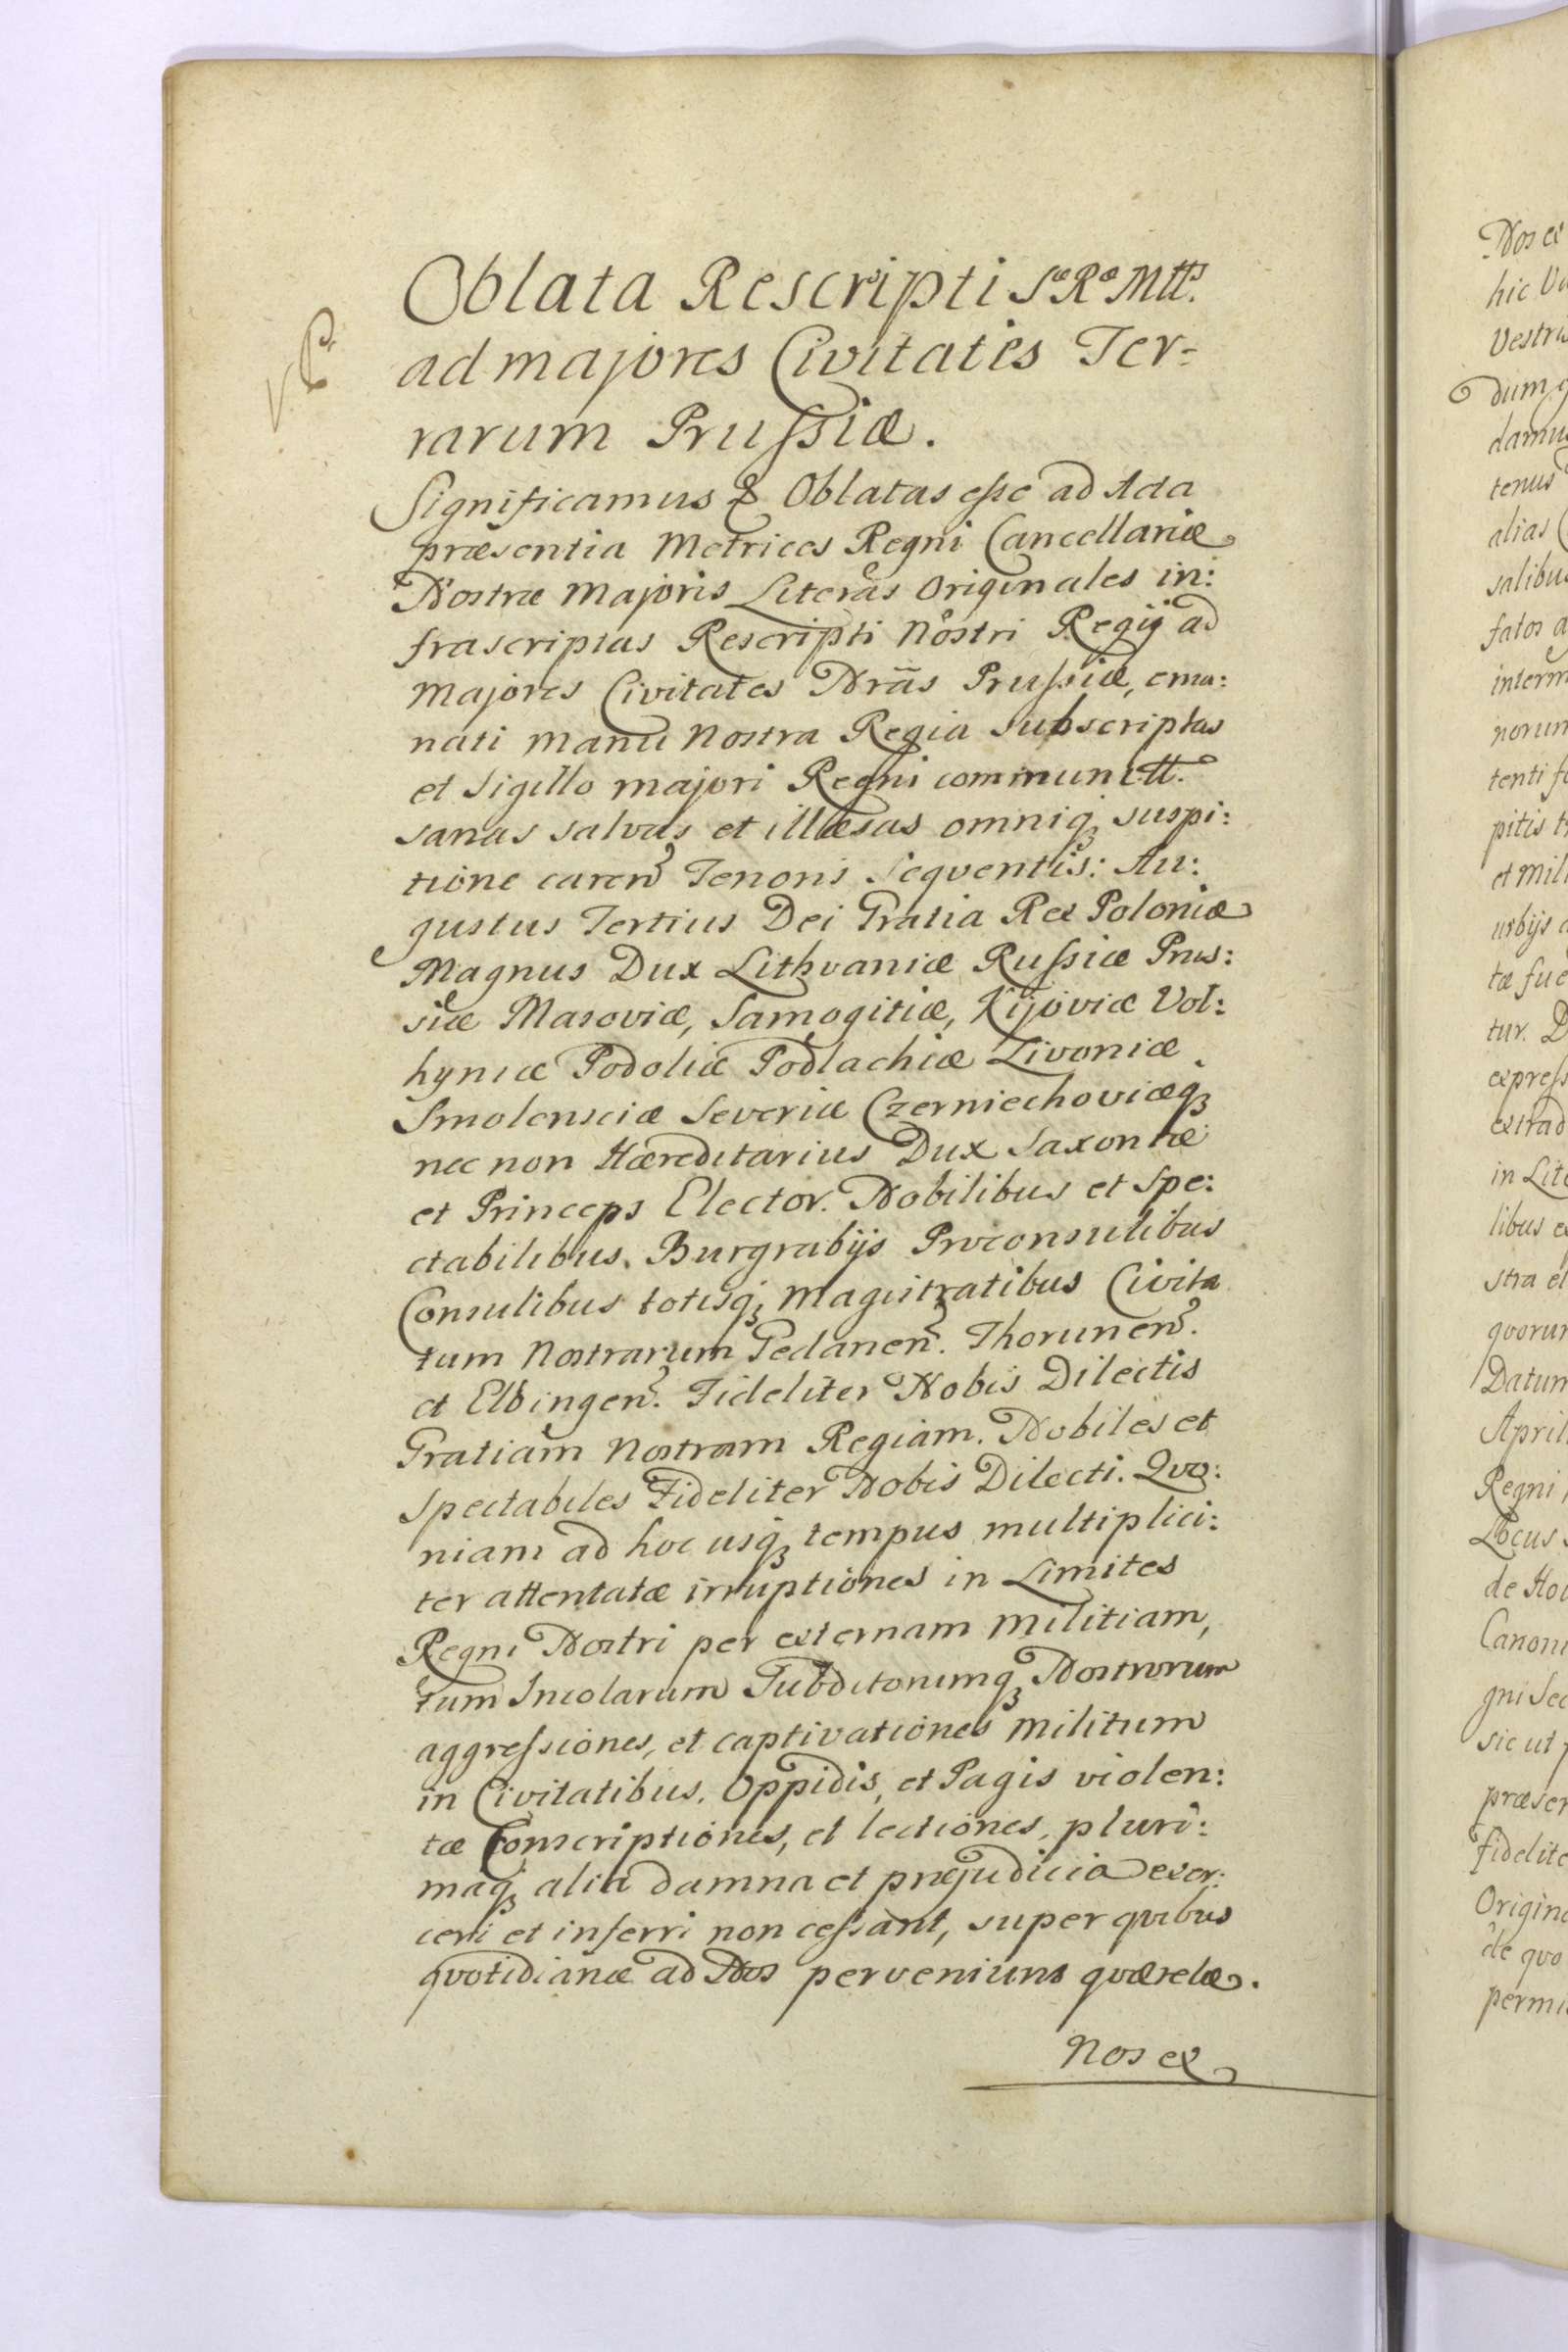 Oblata Rescripti Sæ Ræ Mttis
ad majores Civitates Ter=
rarum Prussiæ.
Significamus & Oblatas esse ad Acta
præsentia Metrices Regni Cancellariæ
Nostræ Majoris Literas Originales in:
frascriptas Rescripti Nostri Regij ad
Majores Civitates Nrãs Prussiæ, ema:
nati manu Nostra Regia subscriptas
et Sigillo majori Regni communitt.
sanas salvas et illæsas omniq; suspi:
tione caren Tenoris Seqventis: Au:
gustus Tertius Dei Gratia Rex Poloniæ
Magnus Dux Lithvaniæ Russiæ Prus:
siæ Masoviæ, Samogitiæ, Kijoviæ Vol:
hyniæ Podoliæ Podlachiæ Livoniæ
Smolensciæ Severiæ Czerniechoviæq;
nec non Hæreditarius Dux Saxoniæ
et Princeps Elector. Nobilibus et Spe:
ctabilibus. Burgrabijs Proconsulibus
Consulibus totisq; Magistratibus Civita
tum Nostrarum Gedanen. Thorunen.
et Elbingen. Fideliter Nobis Dilectis
Gratiam Nostram Regiam. Nobiles et
Spectabiles Fideliter Nobis Dilecti. Qvo:
niam ad hoc usq; tempus multiplici:
ter attentatæ irruptiones in Limites
Regni Nostri per externam Militiam,
tum Incolarum Subditorumq; Nostrorum
aggressiones, et captivationes Militum
in Civitatibus, Oppidis, et Pagis violen:
tæ Conscriptiones, et lectiones, pluri:
maq; alia damna et præjudicia exer:
ceri et inferri non cessant, super qvibus
qvotidianæ ad Nos perveniuns qværelæ.
Nos ex
Nos ex
hic
Vestris
dum
damus
tenus
alias
salibus
fatos
interm
norum
tenti
pitis
et mili
urbijs
tæ fue
tur. D
express
extrad
in Lite
libus
stra et
qvorum
Datum
April
Regni
Locus
de Hou
Canoni
gni Sec
sic ut
præsen
fidelite
Origina
de qvo
permi